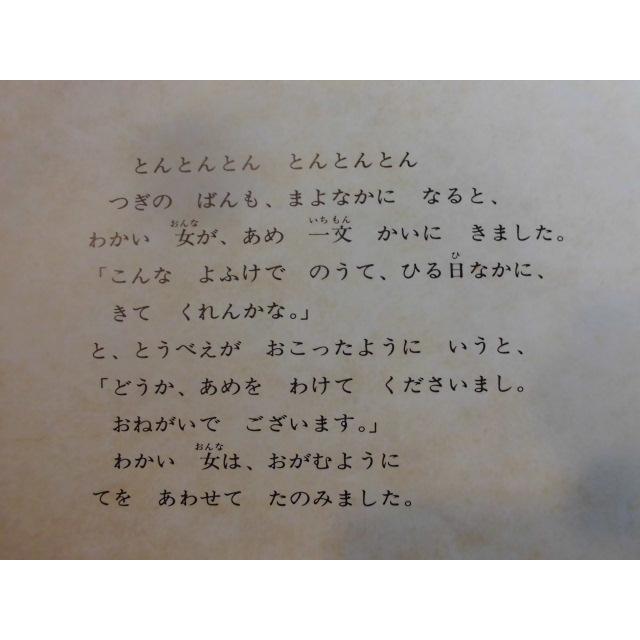 とんとんとん　とんとんとん
つぎの　ばんも、まよなかに　なると、
わかい　女が、あめ　一文　かいに　きました。
「こんな　よふけで　のうて、ひる日なかに、
きて　くれんかな。」
と、とうべえが　おこったように　いうと、
「どうか、あめを　わけて　くださいまし。
おねがいで　ございます。」
わかい　女は、おがむように
てを　あわせて　たのみました。